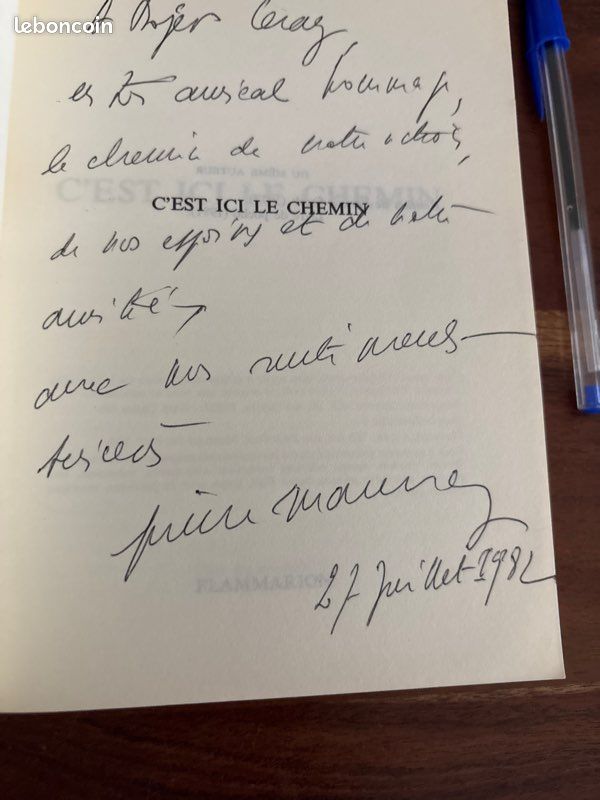 leboncoin
A Roger
en très amical hommage,
le chemin de notre action,
C'EST ICI LE CHEMIN
de nos efforts et de notre
amitié,
avec nos sentiments
Pierre Mauroy
27 Juillet 1982
FLAMMARION